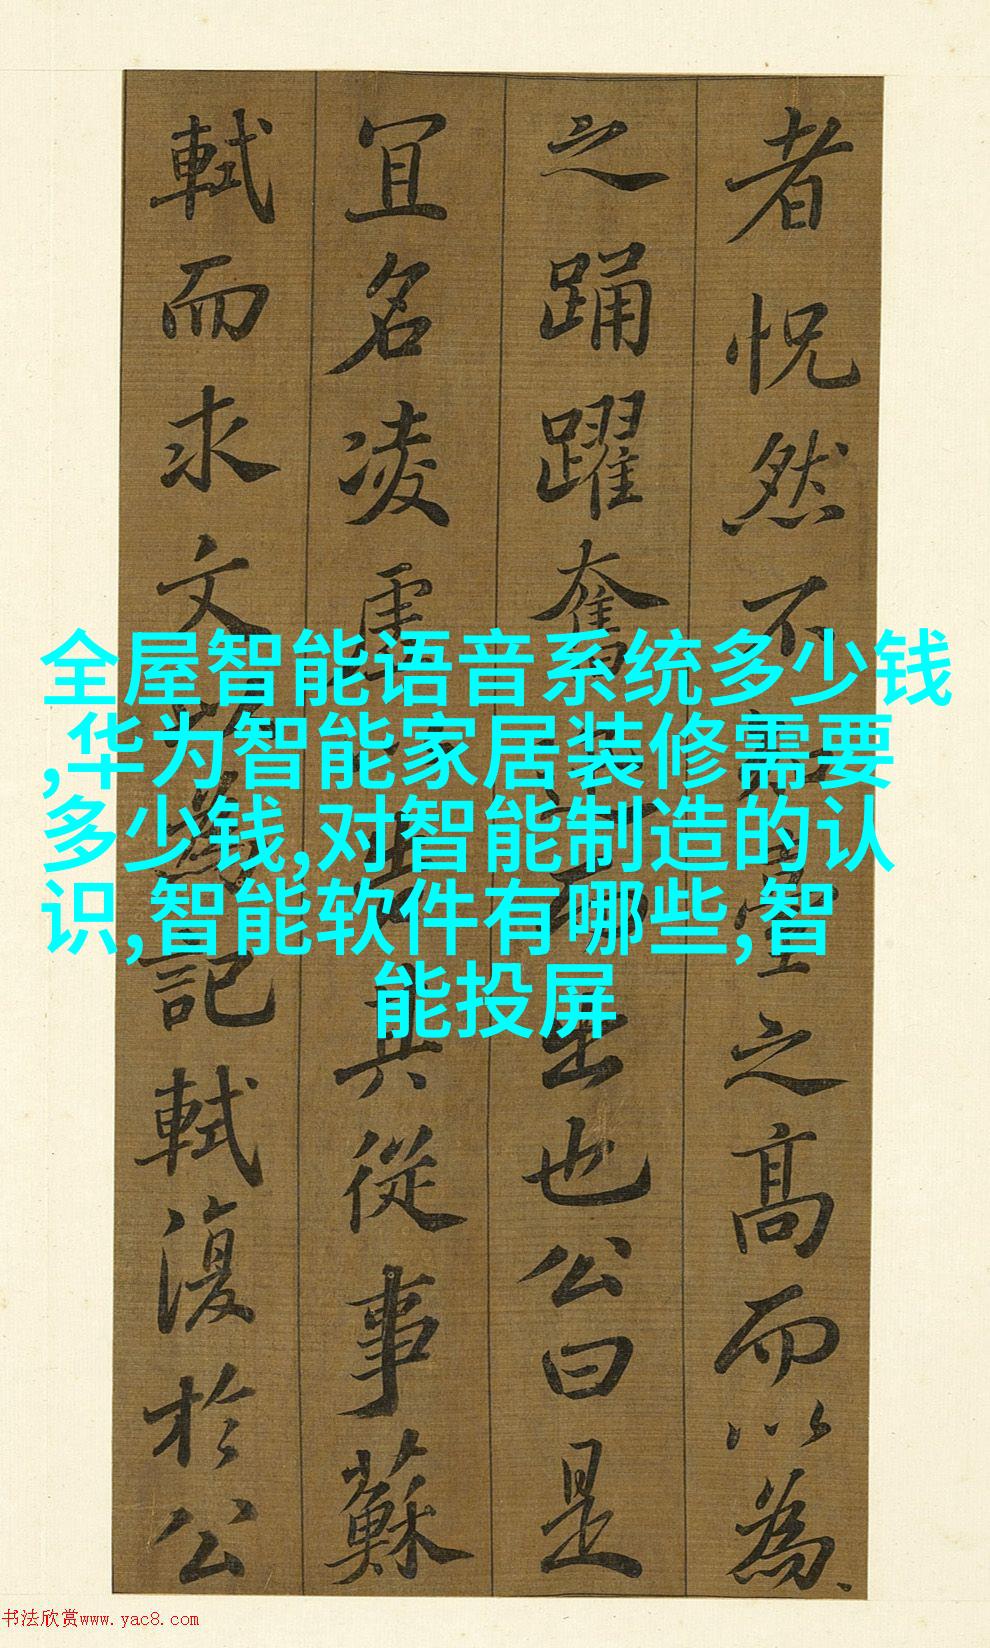 者怳然不臺之高而以為
之踊躍奮而出也公曰是
宜名凌虛告其從事蘇
軾而求文以為記軾復於公
全屋智能语音系统多少钱
,华为智能家居装修需要
多少钱,对智能制造的认
识,智能软件有哪些,智
能投屏
书法欣赏www.yac8.com